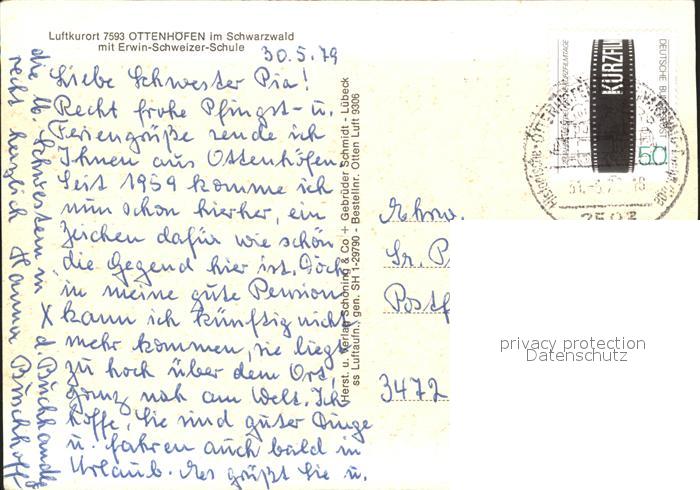 Luftkurort 7593 OTTENHÖFEN im Schwarzwald
mit Erwin-Schweizer-Schule
30.5.79
Liebe Schwester Pia!
Recht frohe Pfingst- u.
Feriengrüße sende ich
Ihnen aus Ottenhöfen.
Seit 1959 komme ich
nun schon hierher, ein
Zeichen dafür wie schön
die Gegend hier ist. Doch
in meine gute Pension
kann ich künftig nicht
mehr kommen, sie liegt
zu hoch über dem Ort,
ganz nah am Welt. Ich
hoffe, Sie sind guter Dinge
u. fahren auch bald in
Urlaub. Es grüßt Sie u.
die lb. Schwestern in X d. Buchhandlg
recht herzlich Hanna
Herst. u. Verlag Schöning & Co + Gebrüder Schmidt - Lübeck
ss Luftaufn. gen. SH 1-29790 - Bestellnr. Otten Luft 9306
Ehrw.
Sr. P
Postf
3472
KURZFIL
DEUTSCHE BUNDESPOST
50
privacy protection
Datenschutz